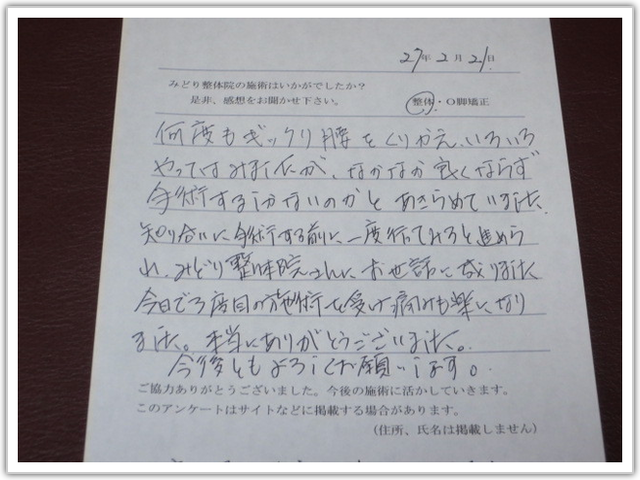 27年2月21日
みどり整体院の施術はいかがでしたか？
是非、感想をお聞かせ下さい。
整体・O脚矯正
何度もギックリ腰をくりかえ、いろいろ
やってはみましたが、なかなか良くならず
手術するしかないのかと あきらめていました。
知り合いに手術する前に一度行ってみろと進めら
れ、みどり整体院さんに お世話に成りました
今日で3度目の施術を受け痛みも楽になり
ました。本当にありがとうございました。
今後ともよろしくお願いします。
ご協力ありがとうございました。今後の施術に活かしていきます。
このアンケートはサイトなどに掲載する場合があります。
（住所、氏名は掲載しません）